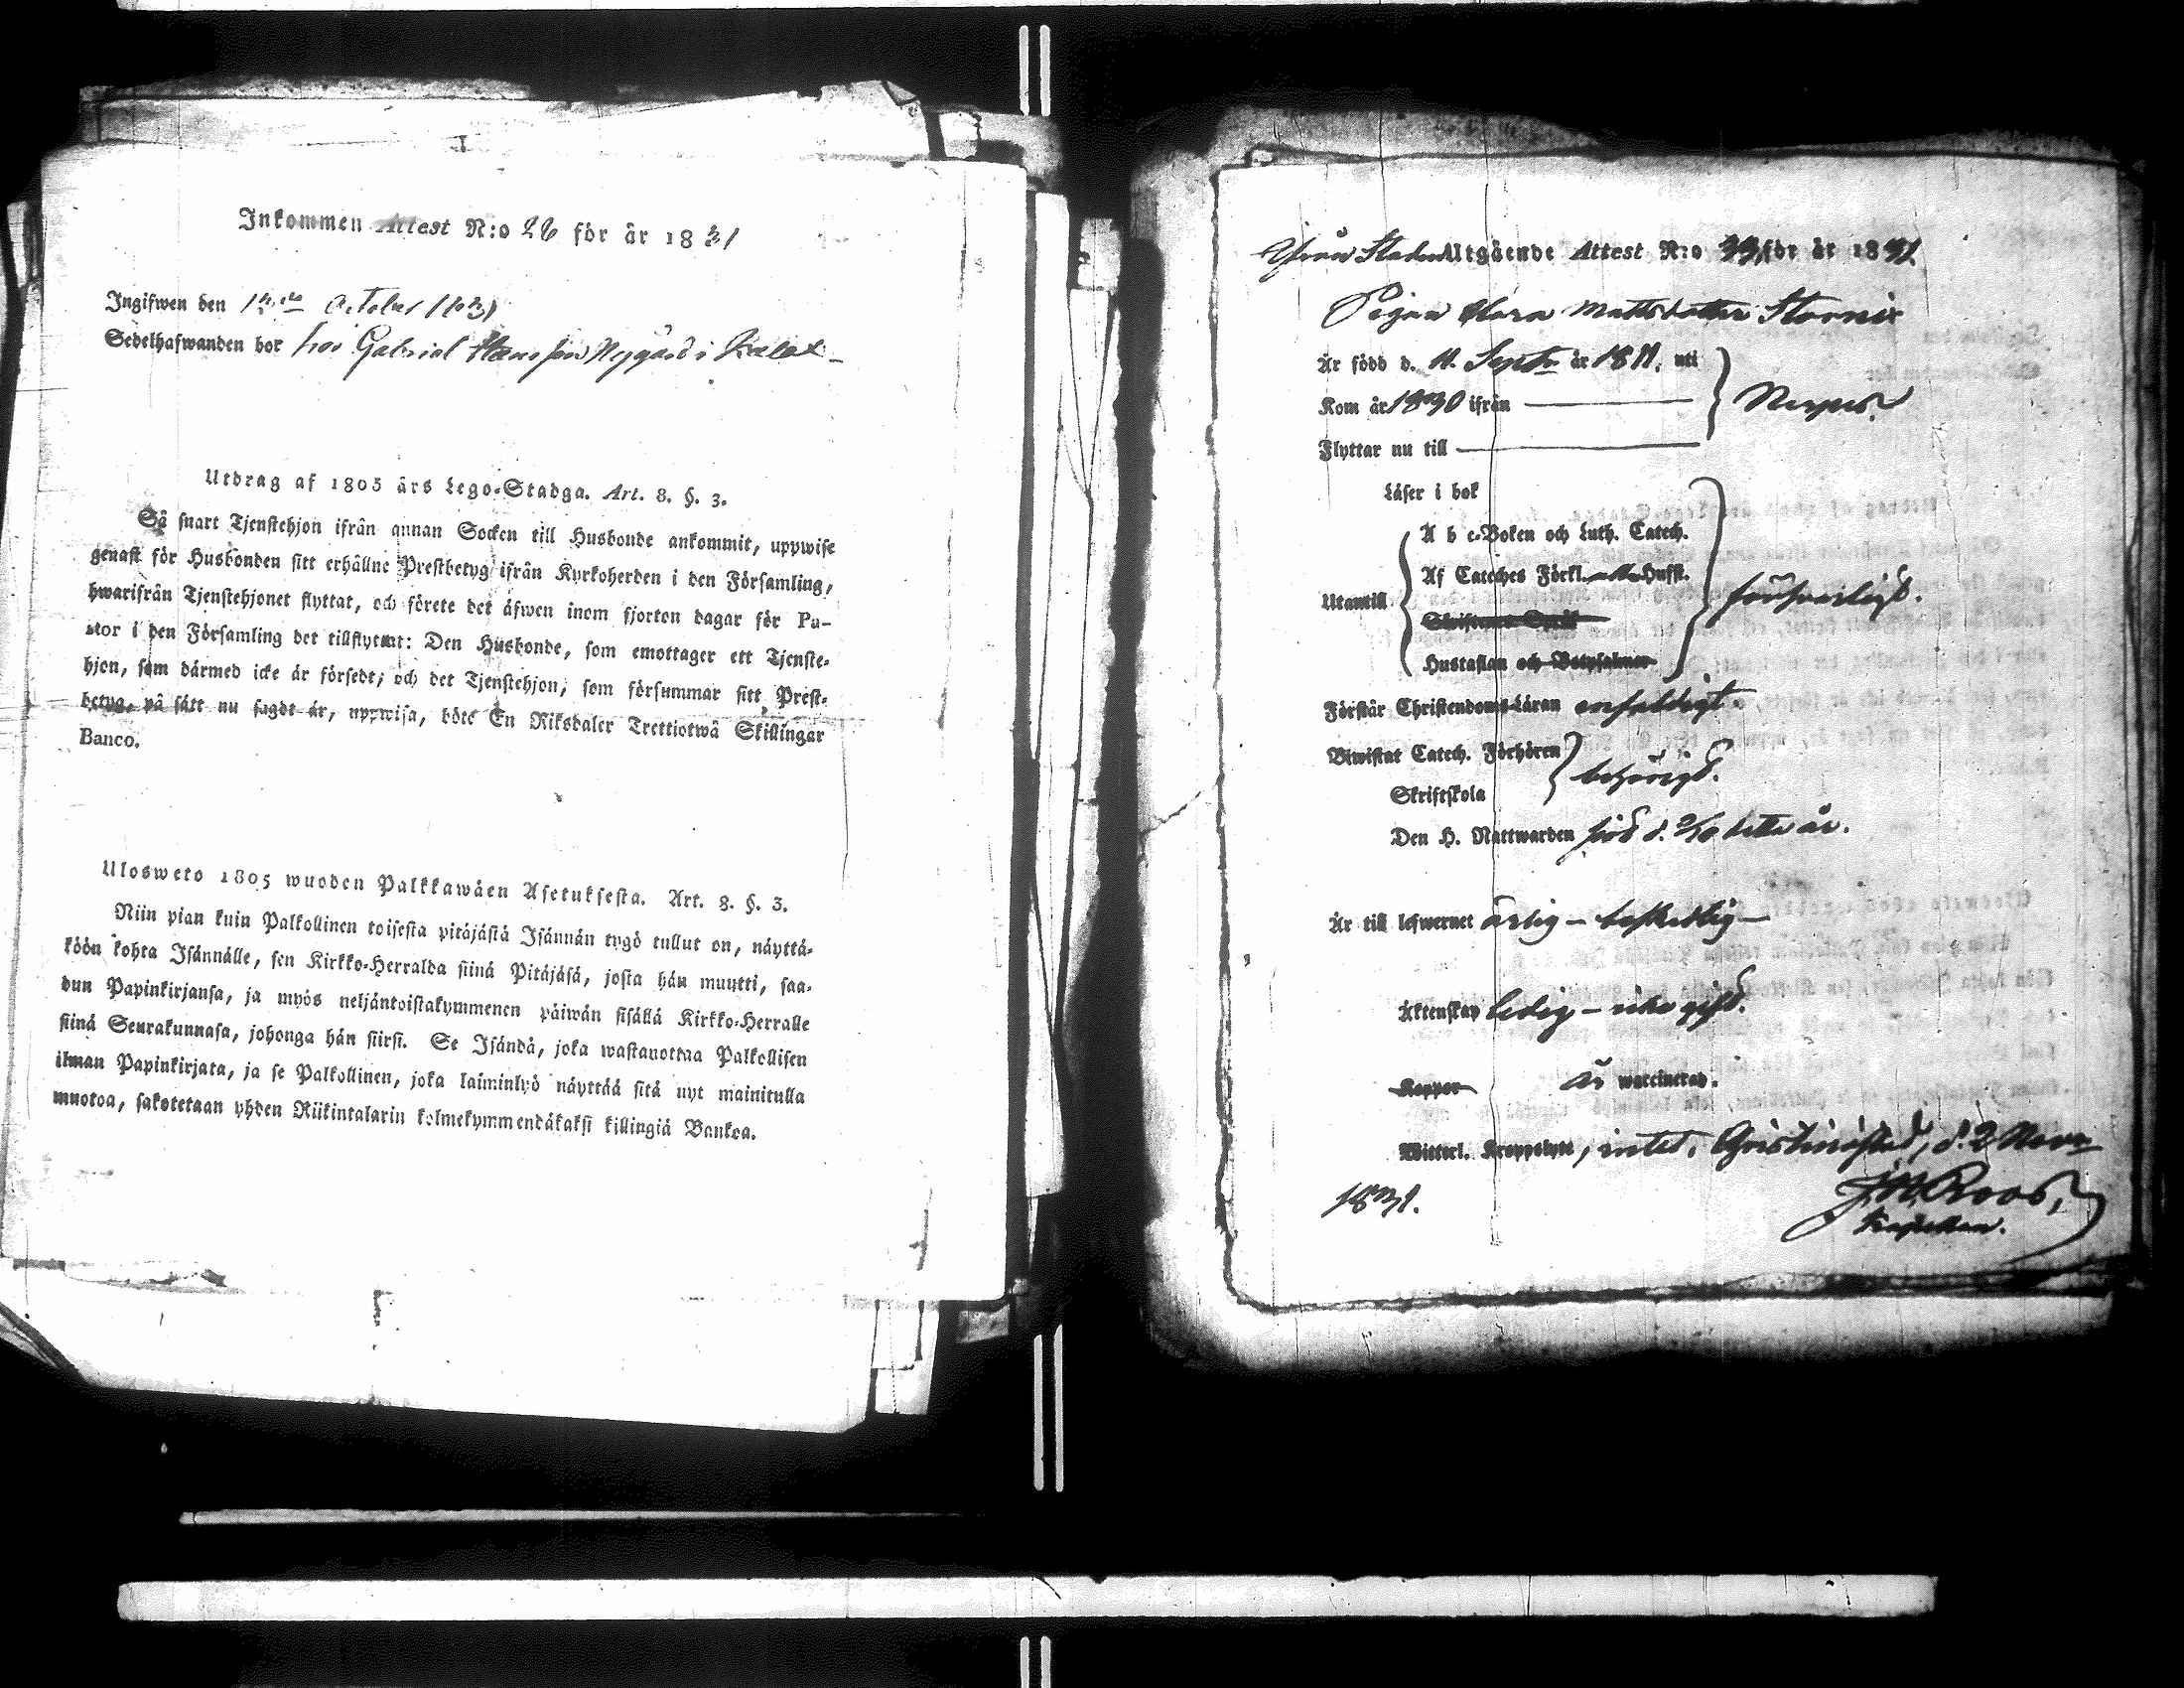 Inkommen Attest N:o 26 för år 1831
Ingifwen den 12te October 1831
Sedelhafwanden bor hos Gabriel Hansson Nygård i
Utdrag af 1805 års Lego-Stadga. Art. 8. §. 3.
Så snart Tjenstehjon ifrån annan Socken till Husbonde ankommit, uppwise
genast för Husbonden sitt erhållne Prestbetyg ifrån Kyrkoherden i den Församling,
hwarifrån Tjenstehjonet flyttat, och förete det äfwen inom fjorton dagar för Pa-
stor i den Församling det tillflyttat: Den Husbonde, som emottager ett Tjenste-
hjon, som därmed icke är försedt, och det Tjenstehjon, som försummar sitt Prest-
betyg, på sätt nu sagdt är, uppwisa, böte En Riksdaler Trettiotwå Skillingar
Banco.
Ulosweto 1805 wuoden Palkkawäen Asetuksesta. Art. 8. §. 3.
Niin pian kuin Palkollinen toisesta pitäjästä Isännän tygö tullut on, näyttä-
köön kohta Isännälle, sen Kirkko-Herralda siinä Pitäjäsä, josta hän muutti, saa-
dun Papinkirjansa, ja myös neljäntoistakymmenen päiwän sisällä Kirkko-Herralle
siinä Seurakunnasa, johonga hän siirsi. Se Isändä, joka wastanottaa Palkollisen
ilman Papinkirjata, ja se Palkollinen, joka laiminlyö näyttää sitä nyt mainitulla
muotoa, sakotetaan yhden Riikintalarin kolmekymmendäkaksi killingiä Bankoa.
Ifrån Staden Utgående Attest N:o 33, för år 1831.
Pigan Clara Mattsdotter Stoornix
Är född d. 11. Septr år 1811. uti
Kom år 1830 ifrån
Nerpes.
Flyttar nu till
Läser i bok
A b c-Boken och Luth. Catech.
Af Cateches Förkl. Husst.
Utantill
försvarligt.
Skriftenes Språk
Hustaflan och Botpsalmer
Förstår Christendoms-Läran enfaldigt.
Biwistat Catech. Förhören
behörigt.
Skriftskola
Den H. Nattwarden sist d. 2/10 detta år.
Är till lefwernet ärlig - beskedlig -
Äktenskap ledig - icke gift.
Koppor är waccinerad.
Witterl. Kroppslyte, intet. Christinestad, d. 2 Novr
1831.
J. N. Roos,
Kapellan.